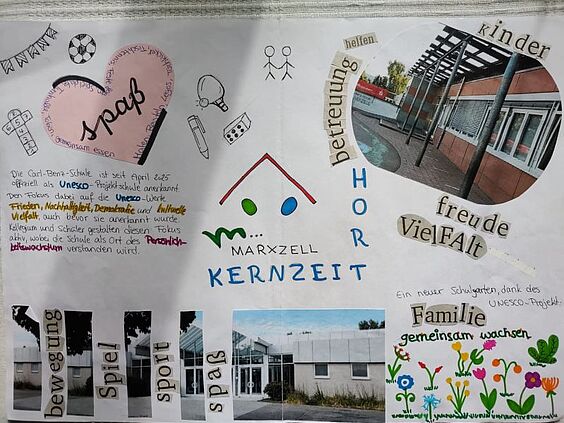 spaß
gemeinsam essen
Die Carl-Benz-Schule ist seit April 2025
offiziell als Unesco-Projektschule anerkannt.
Den Fokus dabei auf die Unesco-Werte
Frieden, Nachhaltigkeit, Demokratie und kulturelle
Vielfalt, auch bevor sie anerkannt wurde
Kollegium und Schüler gestalten diesen Fokus
aktiv, wobei die Schule als Ort des Persönlich-
verstanden wird.
m...
MARXZELL
HORT
KERNZEIT
betreuung
helfen
Kinder
freude
VielFAlt
Ein neuer Schulgarten, dank des
UNESCO-Projekt:
Familie
gemeinsam wachsen
bewegung
Spiel
sport
spaß